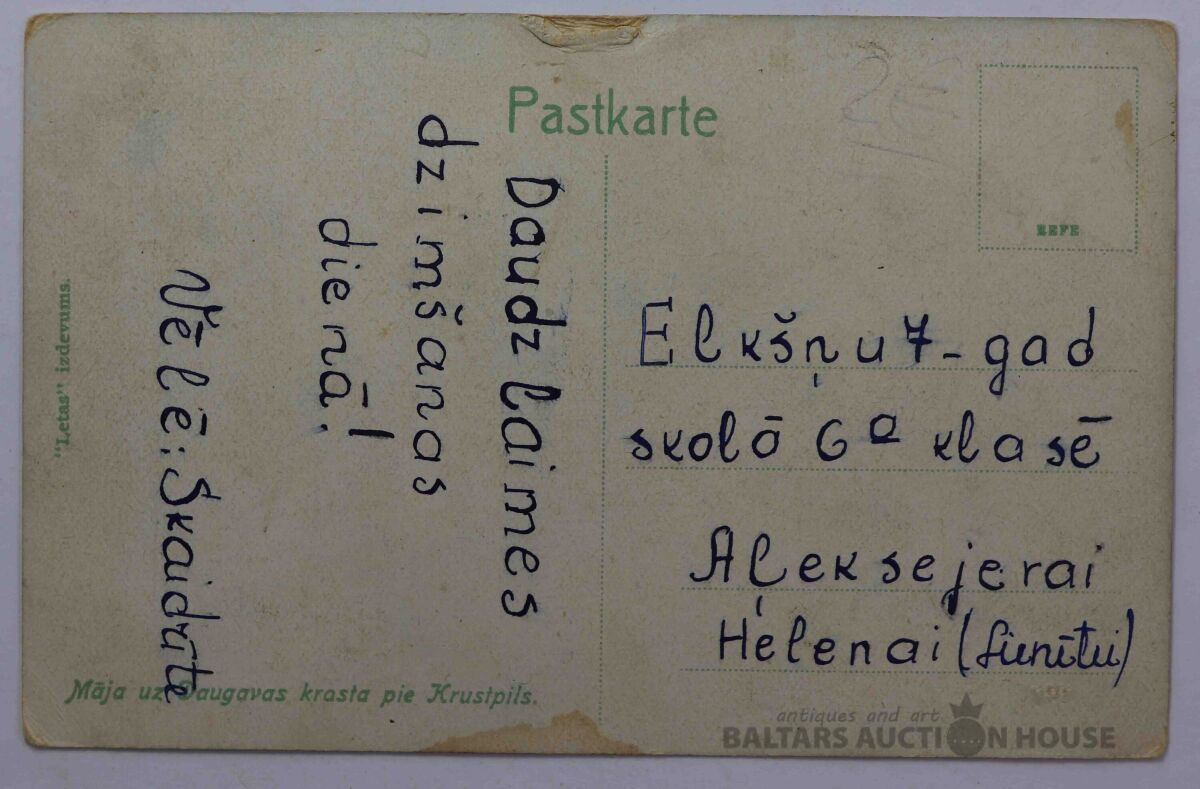 Pastkarte
Daudz laimes
dzimšanas
dienā!
Vēlē: Skaidrīte
Elkšņu 7-gad
skolā 6ª klasē
Aļeksejerai
Helenai
"Letas" izdevums.
Māja uz Daugavas krasta pie Krustpils.
antiques and art
BALTARS AUCTION HOUSE